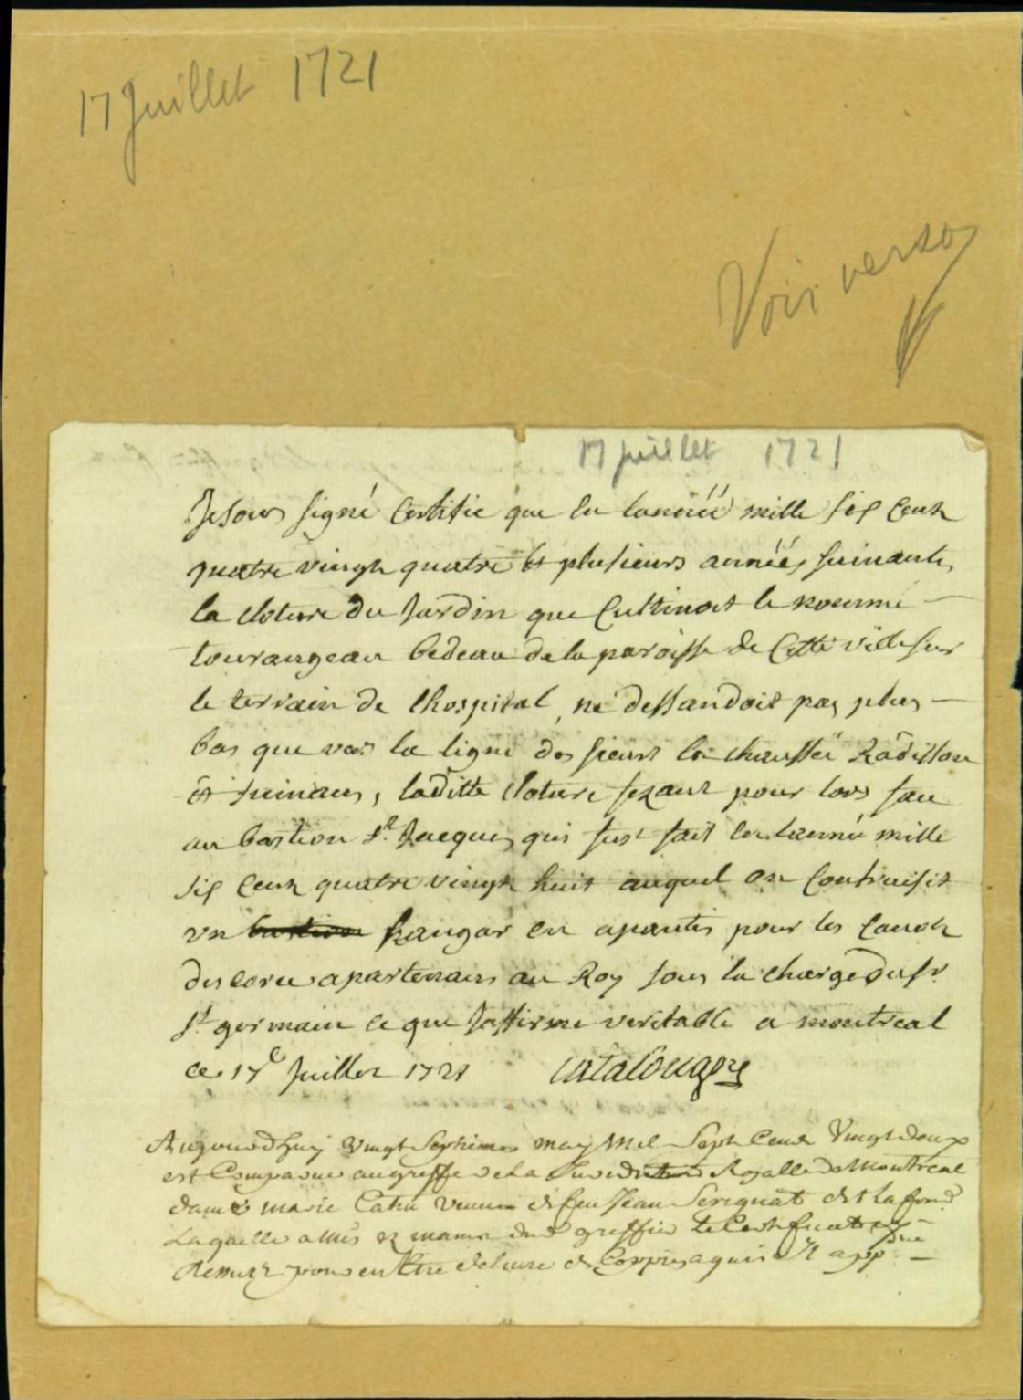 17 Juillet 1721
Voir verso
17 juillet 1721
Je sous signé Certifie que en lannéé mille six Cents
quatre vingts quatre et plusieurs annéés suivants,
la cloture du Jardin que Cultivoit le nommé
tourangeau bedeau de la paroisse de Cette ville sur
le terrain de lhospital, ne dessandoit pas plus
bas que vers la ligne des sieurs la chaussée Radisson
et suivans, laditte cloture fezant pour lors face
au bastion St Jacques qui fust fait en lannée mille
six Cents quatre vingts huit auquel on Contruisit
un bastion hangar en apantis pour les Canots
descorce apartenans au Roy sous la charge du sr
St germain ce que Jaffirme veritable a montreal
ce 17e Juillet 1721 Catalougne
Aujourdhuy Vingt Septieme may Mil Sept Cent Vingt deux
est Comparue au greffe de La Juridiction Royalle de Montreal
dame marie Catin veuve de feu Jean Serignat dit La fond
Laquelle a mis es mains du greffier Le Certificat
pour en Etre delivré des Coppies a qui Il app